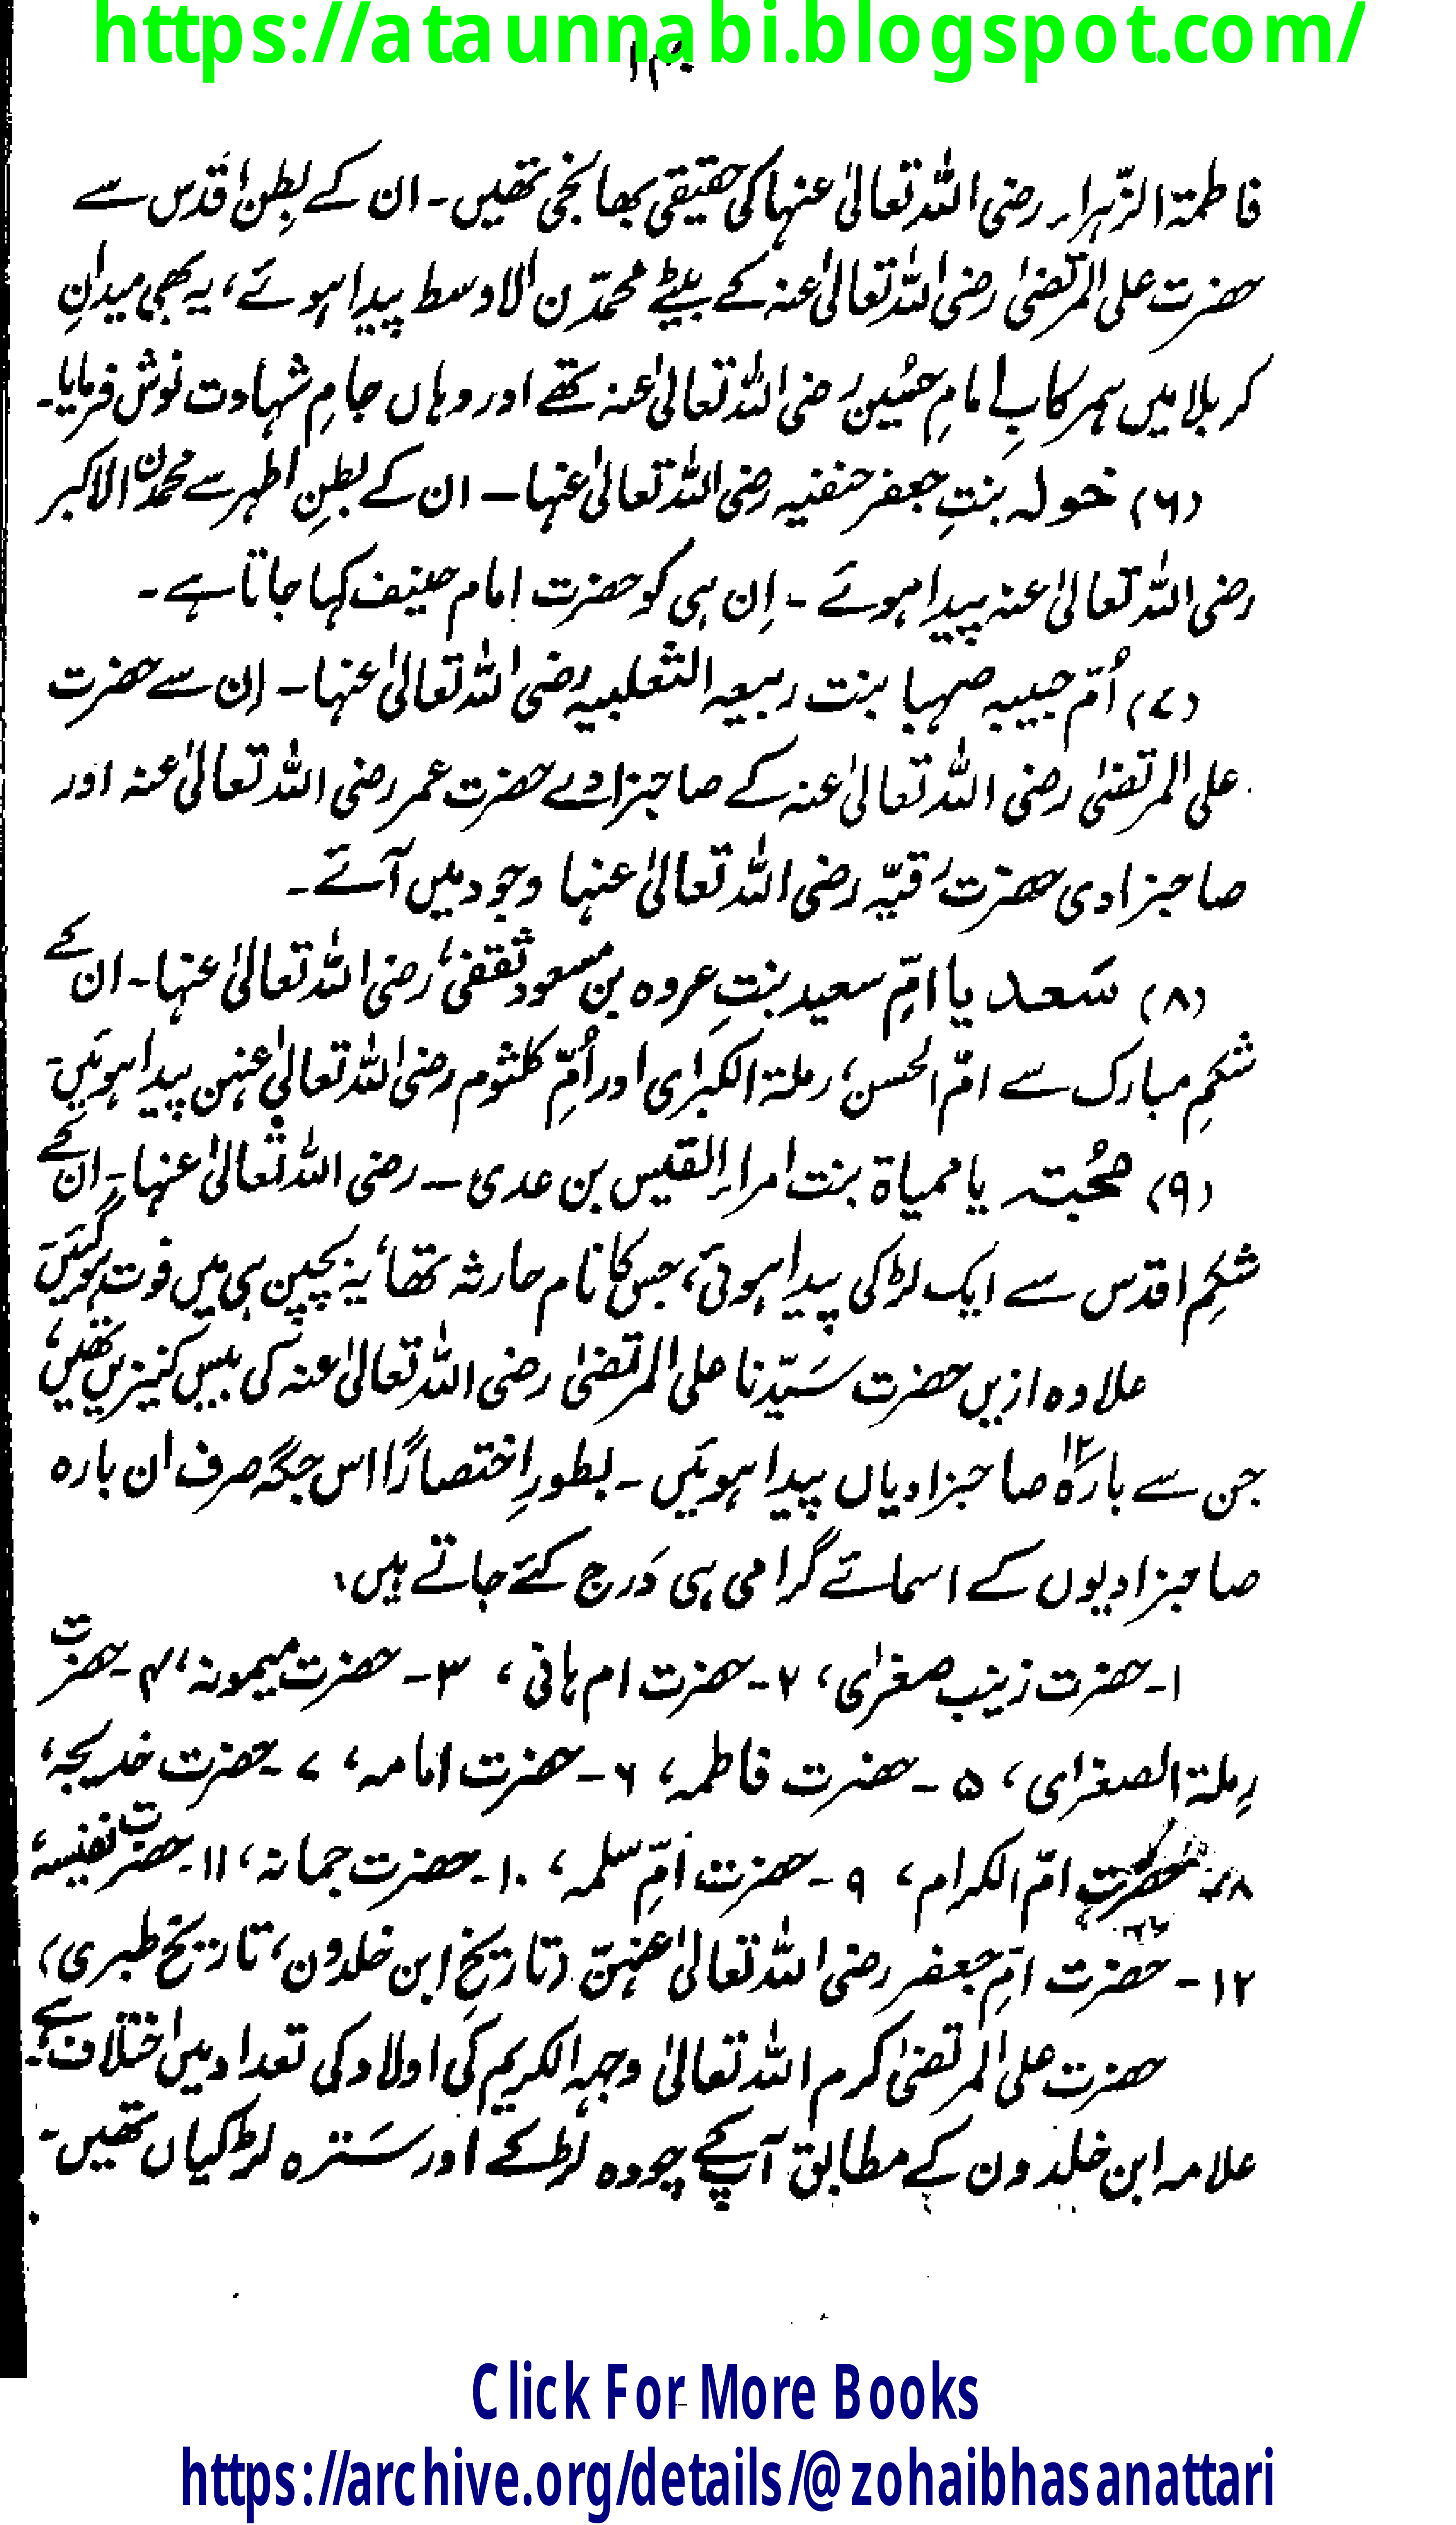 https://ataunnabi.blogspot.com/
فاطمۃ الزّہراء رضی اللہ تعالیٰ عنہا کی حقیقی بھانجی تھیں۔ ان کے بطنِ اقدس سے
حضرت علی المرتضیٰ رضی اللہ تعالیٰ عنہ کے بیٹے محمّدن الاوسط پیدا ہوئے، یہ بھی میدانِ
کربلا میں ہمرکابِ امامِ حسُین رضی اللہ تعالیٰ عنہ تھے اور وہاں جامِ شہادت نوش فرمایا۔
(۶) خولہ بنتِ جعفر حنفیہ رضی اللہ تعالیٰ عنہا — ان کے بطنِ اطہر سے محمدن الاکبر
رضی اللہ تعالیٰ عنہ پیدا ہوئے ۔ اِن ہی کو حضرت امام حنیف کہا جاتا ہے۔
(۷) اُمّ حبیبہ صہبا بنت ربیعہ الثعلبیہ رضی اللہ تعالیٰ عنہا۔ اِن سے حضرت
علی المرتضیٰ رضی اللہ تعالیٰ عنہ کے صاحبزادے حضرت عمر رضی اللہ تعالیٰ عنہ اور
صاحبزادی حضرت رُقیّہ رضی اللہ تعالیٰ عنہا وجود میں آئے۔
(۸) سَعد یا امِّ سعید بنتِ عروہ بن مسعود ثقفی، رضی اللہ تعالیٰ عنہا۔ ان کے
شکمِ مبارک سے امّ الحسن، رملۃ الکبرٰی اور اُمِّ کلثوم رضی اللہ تعالیٰ عنہن پیدا ہوئیں۔
(۹) محُبتہ یا ممیاۃ بنت امراءِ القیس بن عدی — رضی اللہ تعالیٰ عنہا۔ ان کے
شکمِ اقدس سے ایک لڑکی پیدا ہوئی، جس کا نام حارثہ تھا، یہ بچپن ہی میں فوت ہوگئیں۔
علاوہ ازیں حضرت سَیّدنا علی المرتضیٰ رضی اللہ تعالیٰ عنہ کی بیس کنیزیں تھیں،
جن سے بارہ ۱۲ صاحبزادیاں پیدا ہوئیں ۔ بطورِ اختصارًا اس جگہ صرف ان بارہ
صاحبزادیوں کے اسمائے گرامی ہی دَرج کئے جاتے ہیں۔
۱۔ حضرت زینب صغرٰی، ۲۔ حضرت ام ہانی، ۳۔ حضرت میمونہ، ۴۔ حضرت
رملۃ الصغرٰی، ۵۔ حضرت فاطمہ، ۶۔ حضرت امامہ، ۷۔ حضرت خدیجہ،
۸۔ حضرت امّ الکرام، ۹۔ حضرت اُمِّ سلمہ، ۱۰۔ حضرت جمانہ، ۱۱۔ حضرت نفیسہ،
۱۲۔ حضرت امِّ جعفر رضی اللہ تعالیٰ عنہنّ (تاریخِ ابن خلدون، تاریخ طبری)
حضرت علی المرتضیٰ کرم اللہ تعالیٰ وجہہ الکریم کی اولاد کی تعداد میں اختلاف ہے۔
علامہ ابن خلدون کے مطابق آپ کے چودہ لڑکے اور سَترہ لڑکیاں تھیں۔
Click For More Books
https://archive.org/details/@zohaibhasanattari